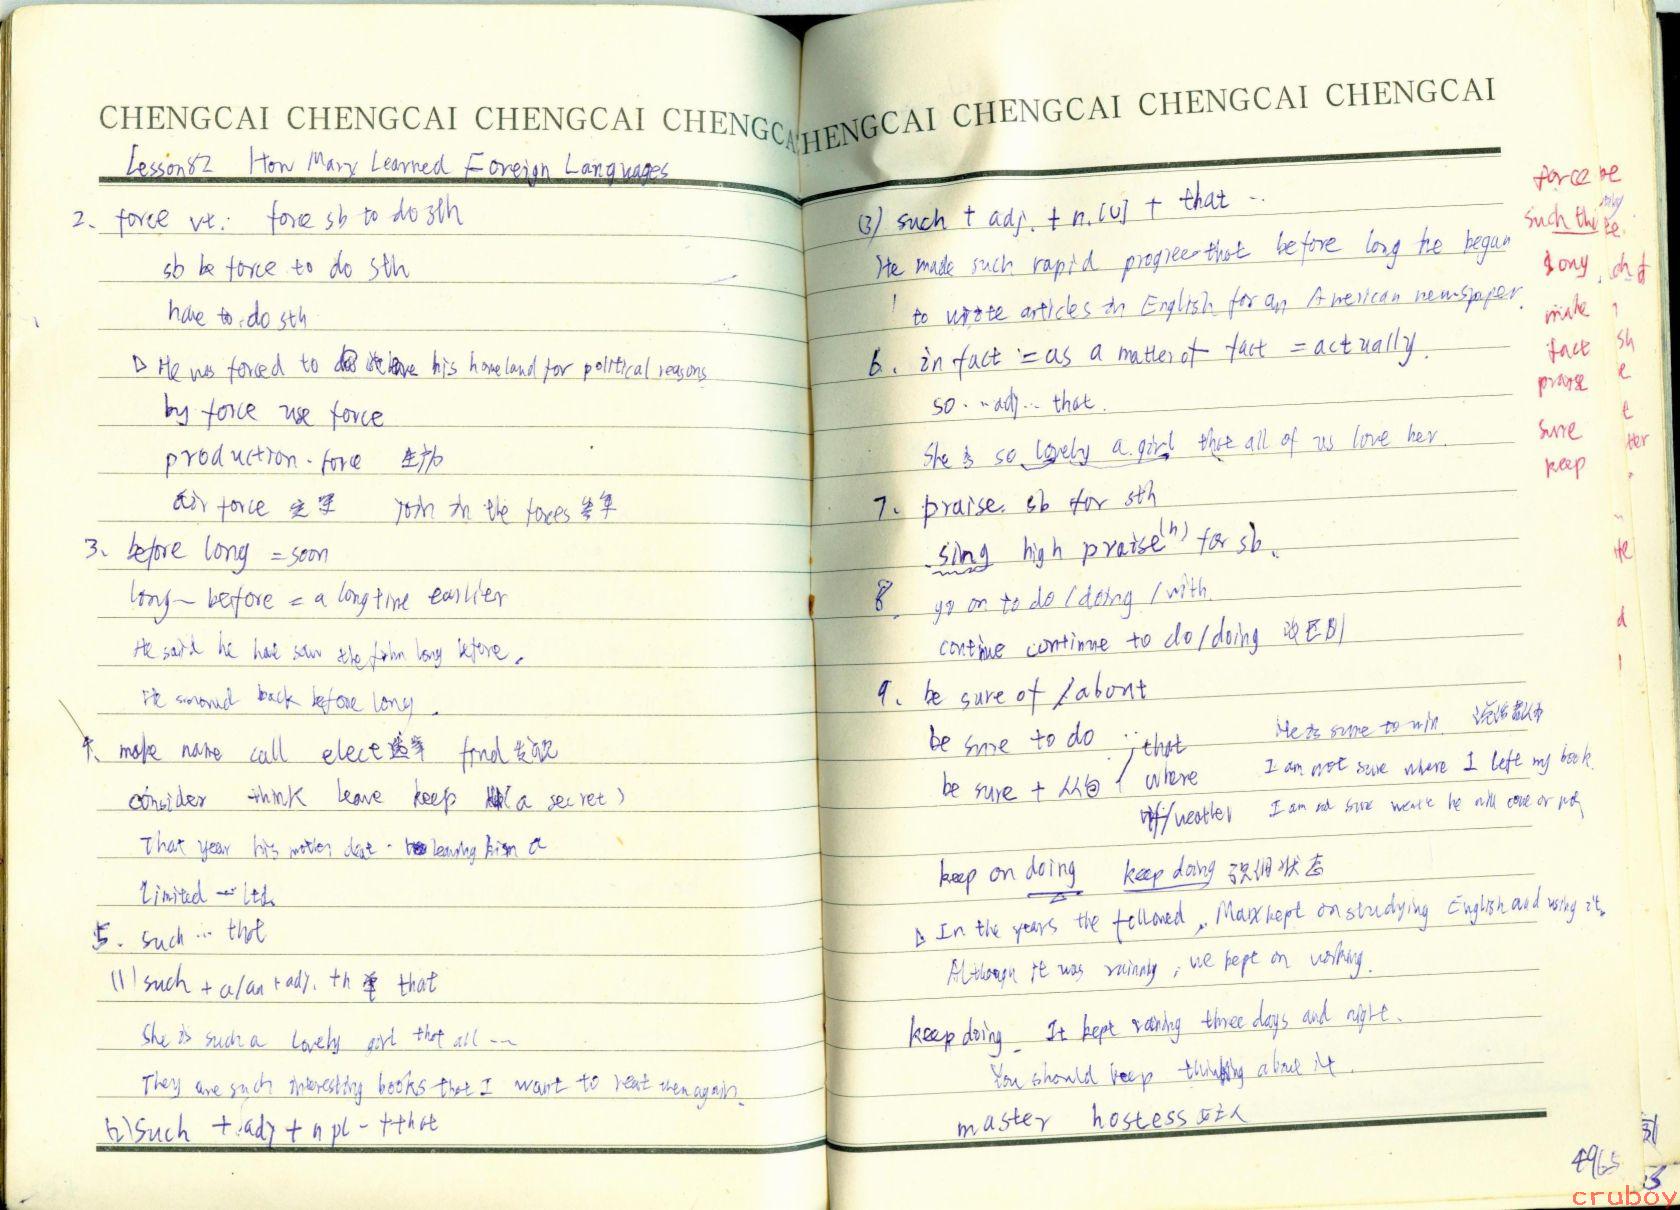 CHENGCAI CHENGCAI CHENGCAI CHENGCA
Lesson 82 How Marx Learned Foreign Languages
2. force vt. force sb to do sth
sb be force to do sth
have to do sth
He was forced to leave his homeland for political reasons
by force use force
production force
air force join in the forces
3. before long = soon
long before = a long time earlier
He said he had saw the film long before.
He back before long.
4. make name call elect find 发现
consider think leave keep (a secret)
That year his mother leaving him a
Limited - Ltd.
5. such ... that
(1) such + a/an + adj. + n 单 that
She is such a lovely girl that all ...
They are such interesting books that I want to reat them again.
(2) Such + adj + n pl - + that
CHENGCAI CHENGCAI CHENGCAI CHENGCAI
(3) such + adj. + n. [U] + that ...
He made such rapid progree that before long he began
to write articles in English for an American newspaper.
6. in fact = as a matter of fact = actually.
so ... adj ... that.
She is so lovely a girl that all of us love her.
7. praise sb for sth
sing high praise (n) for sb.
8. go on to do / doing / with.
continue continue to do / doing 没区别
9. be sure of / about
be sure to do He is sure to win.
be sure + 从句 that
where I am not sure where I left my book.
if/weather I am not sure he will come or not
keep on doing keep doing 强调状态
In the years the followed, Marx kept on studying English and using it.
Although it was rainny, we kept on working.
keep doing It kept raining three days and night.
You should keep thinking about it.
master hostess 女主人
force
such
long
make
fact
praise
sure
keep
4965
cruboy